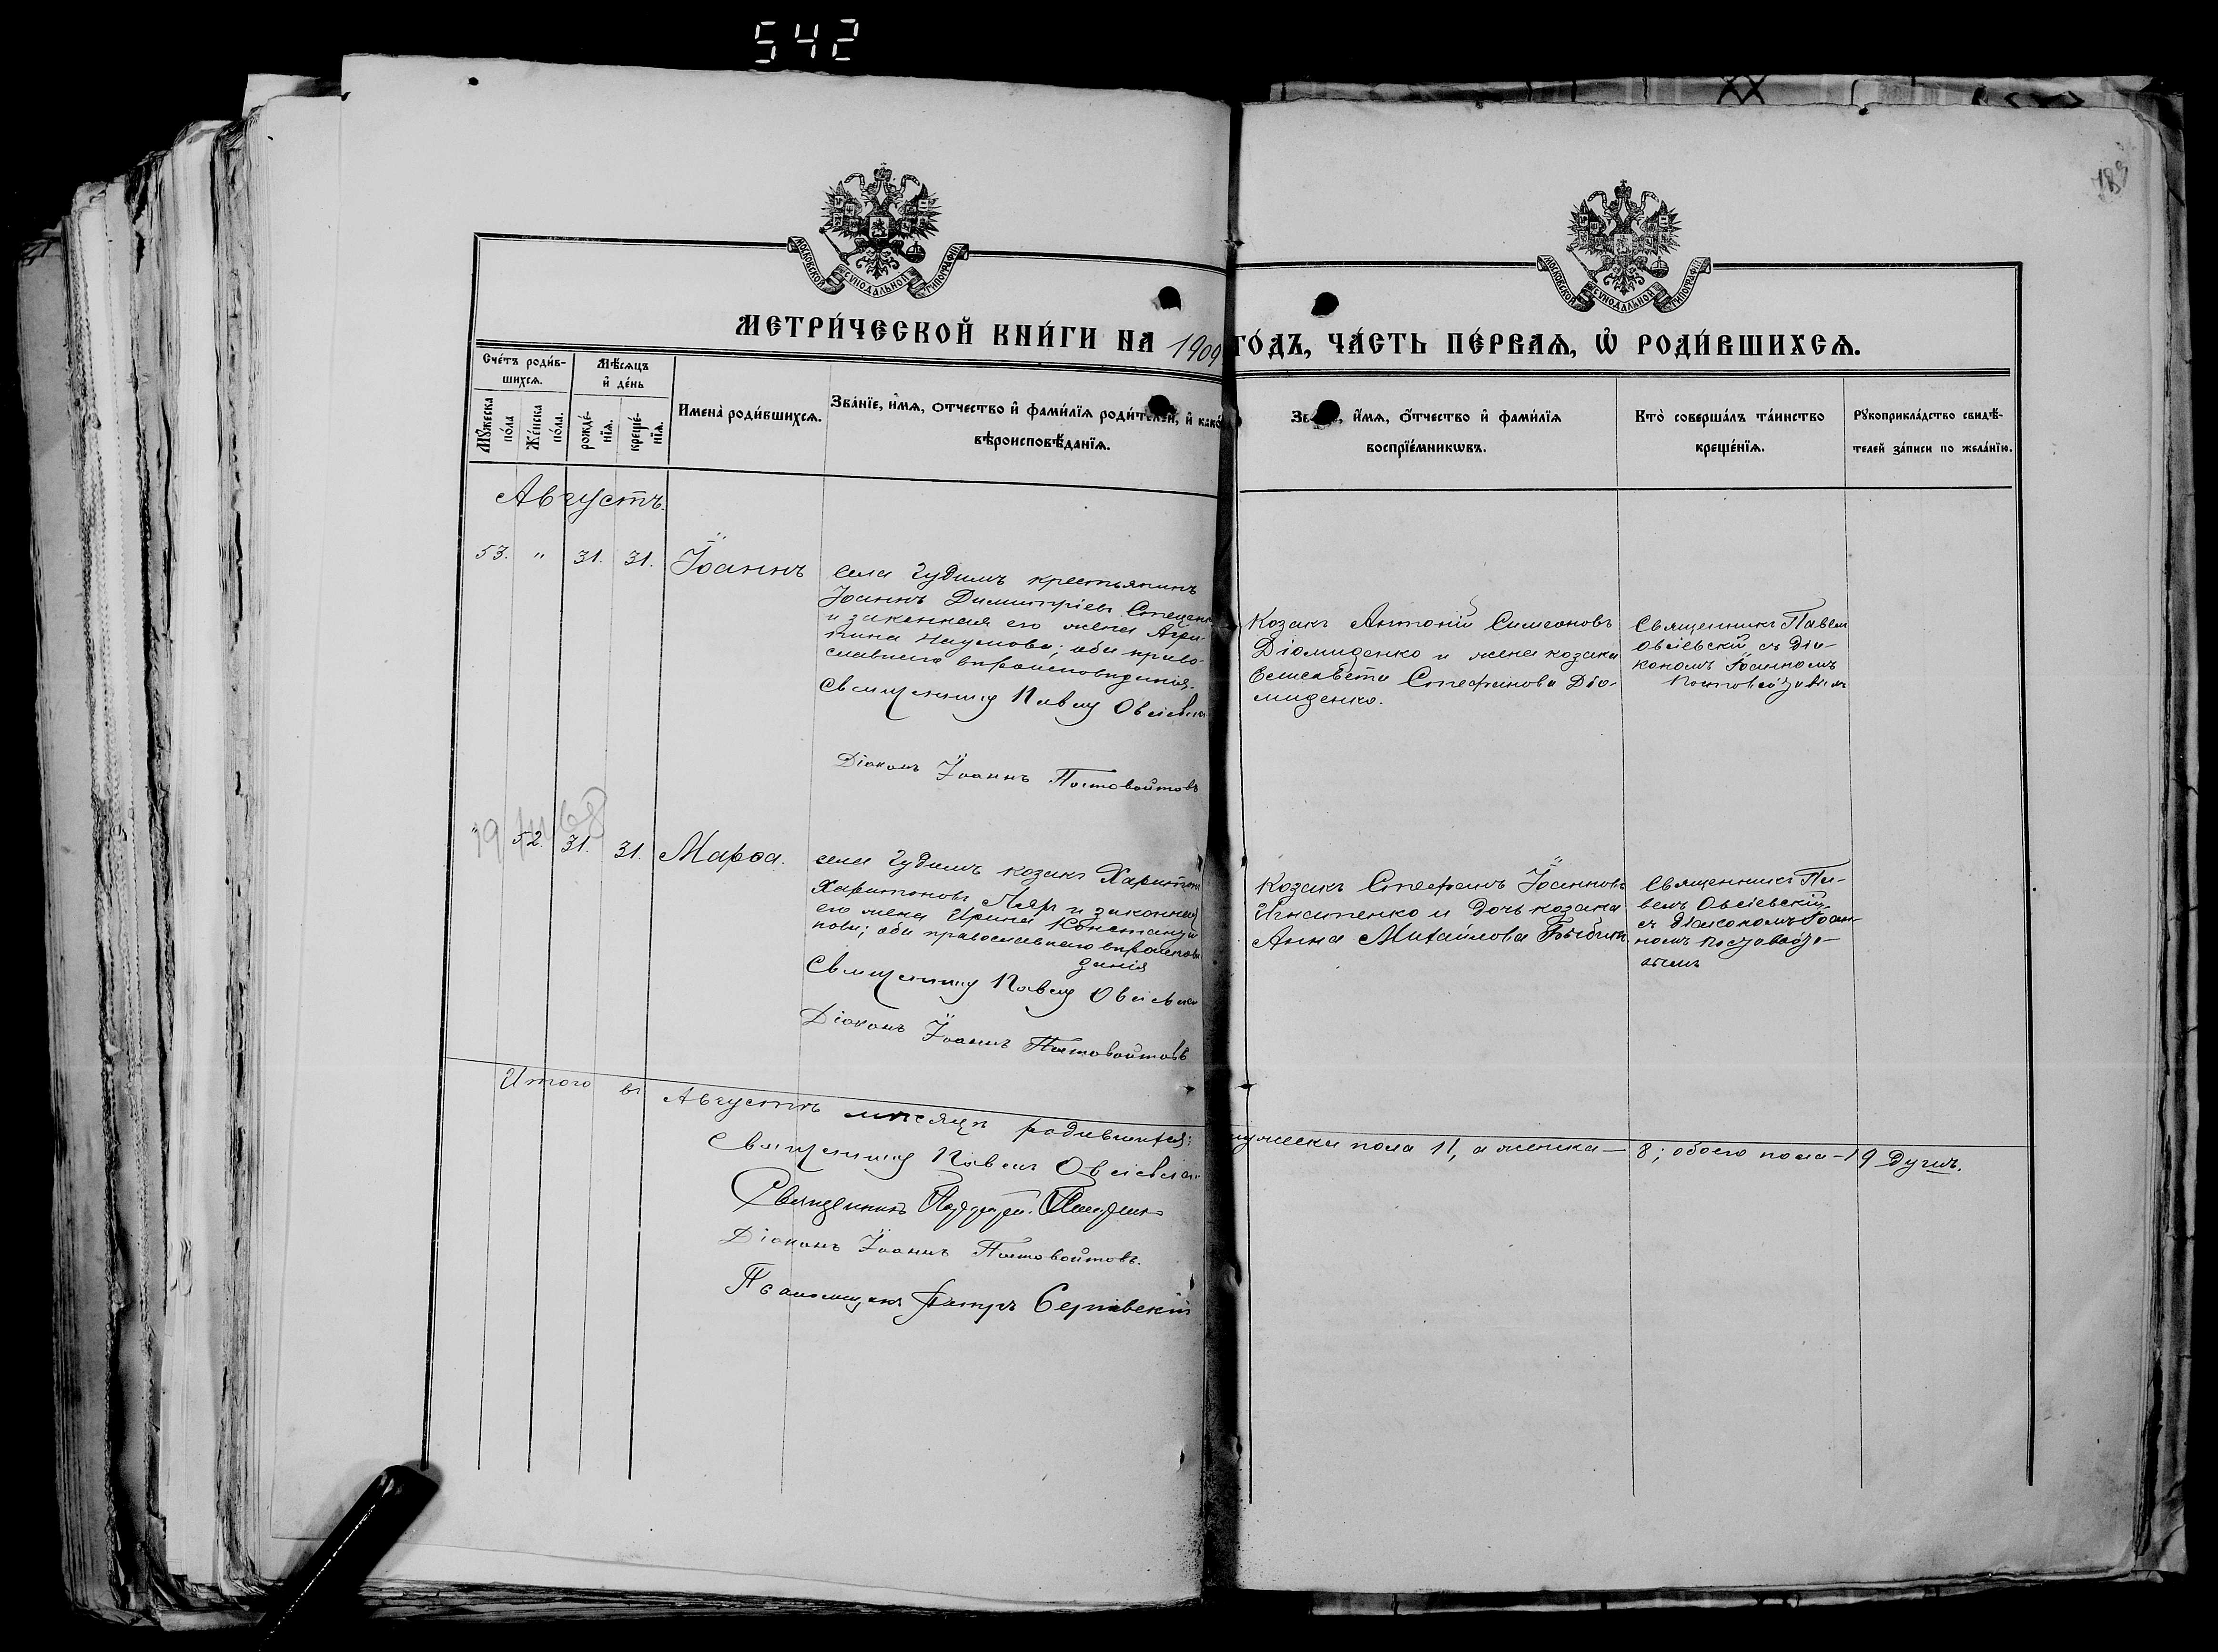 542
189
МОСКОВСКОЙ СѴНОДАЛЬНОЙ ТИПОГРАФІИ
МОСКОВСКОЙ СѴНОДАЛЬНОЙ ТИПОГРАФІИ
МЕТРИ́ЧЕСКОЙ КНИ́ГИ НА 1909 ГО́ДЪ, ЧА́СТЬ ПЕ́РВАЯ, Ѽ РОДИ́ВШИХСЯ.
Сче́тъ роди́в-
шихся.
Мѣ́сяцъ
и де́нь
Му́жеска
по́ла
Же́нска
по́ла.
рожде́-
нія.
креще́-
нія.
Имена̀ роди́вшихся.
Зва́ніе, и́мя, о́тчество и фами́лія роди́телей, и како́
вѣроисповѣ́данія.
и́мя, о́тчество и фами́лія
воспріе́мникѡвъ.
Кто̀ соверша́лъ та́инство
креще́нія.
Рꙋкоприкла́дство свидѣ́-
телей за́писи по жела́нію.
Августъ.
53. " 31. 31. Іоаннъ
села Гудимъ крестьянинъ
Іоаннъ Димитріевъ
и законная его жена Агри-
пина Наумова; оба право-
славнаго вѣроисповѣданія.
Священникъ Павелъ Овсіевскій
Діаконъ Іоаннъ Постовойтовъ
Козакъ Антоній Симеоновъ
Діомиденко и жена козака
Елисавета Стефанова Діо-
миденко.
Священникъ Павелъ
Овсіевскій съ Діа-
кономъ Іоанномъ
Постовойтовымъ
19 68
" 52. 31. 31. Марѳа.
села Гудимъ козакъ Харитонъ
Харитоновъ и законная
его жена Ирина Константи-
нова; оба православнаго вѣроисповѣ-
данія
Священникъ Павелъ Овсіевскій
Діаконъ Іоаннъ Постовойтовъ
Козакъ Стефанъ Іоанновъ
Игнатенко и дочь козака
Анна Михайлова
Священникъ Па-
велъ Овсіевскій
съ Діакономъ Іоан-
номъ Постовойто-
вымъ
Итого въ Августѣ мѣсяцѣ родившихся: мужеска пола 11, а женска — 8; обоего пола — 19 душъ.
Священникъ Павелъ Овсіевскій
Священникъ
Діаконъ Іоаннъ Постовойтовъ.
Псаломщикъ Петръ Сергіевскій